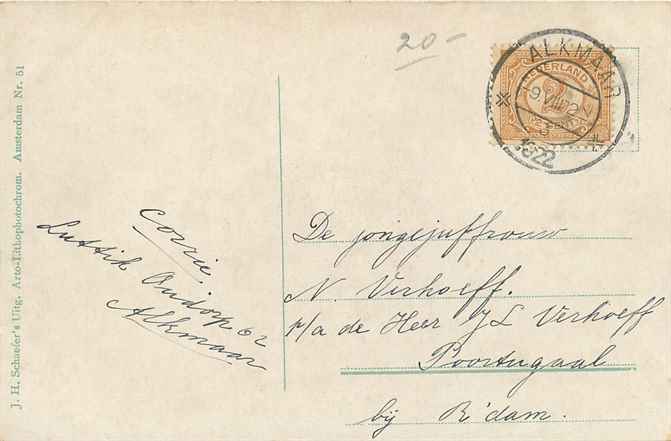 J. H. Schaefer's Uitg. Arto-Lithophotochrom. Amsterdam Nr. 51
20-
ALKMAAR
NEDERLAND
1922
Corrie.
Luttik Oudorp 62
Alkmaar
De jongejuffrouw
N. Verhoeff.
p/a de Heer J L Verhoeff
Poortugaal
bij R'dam.